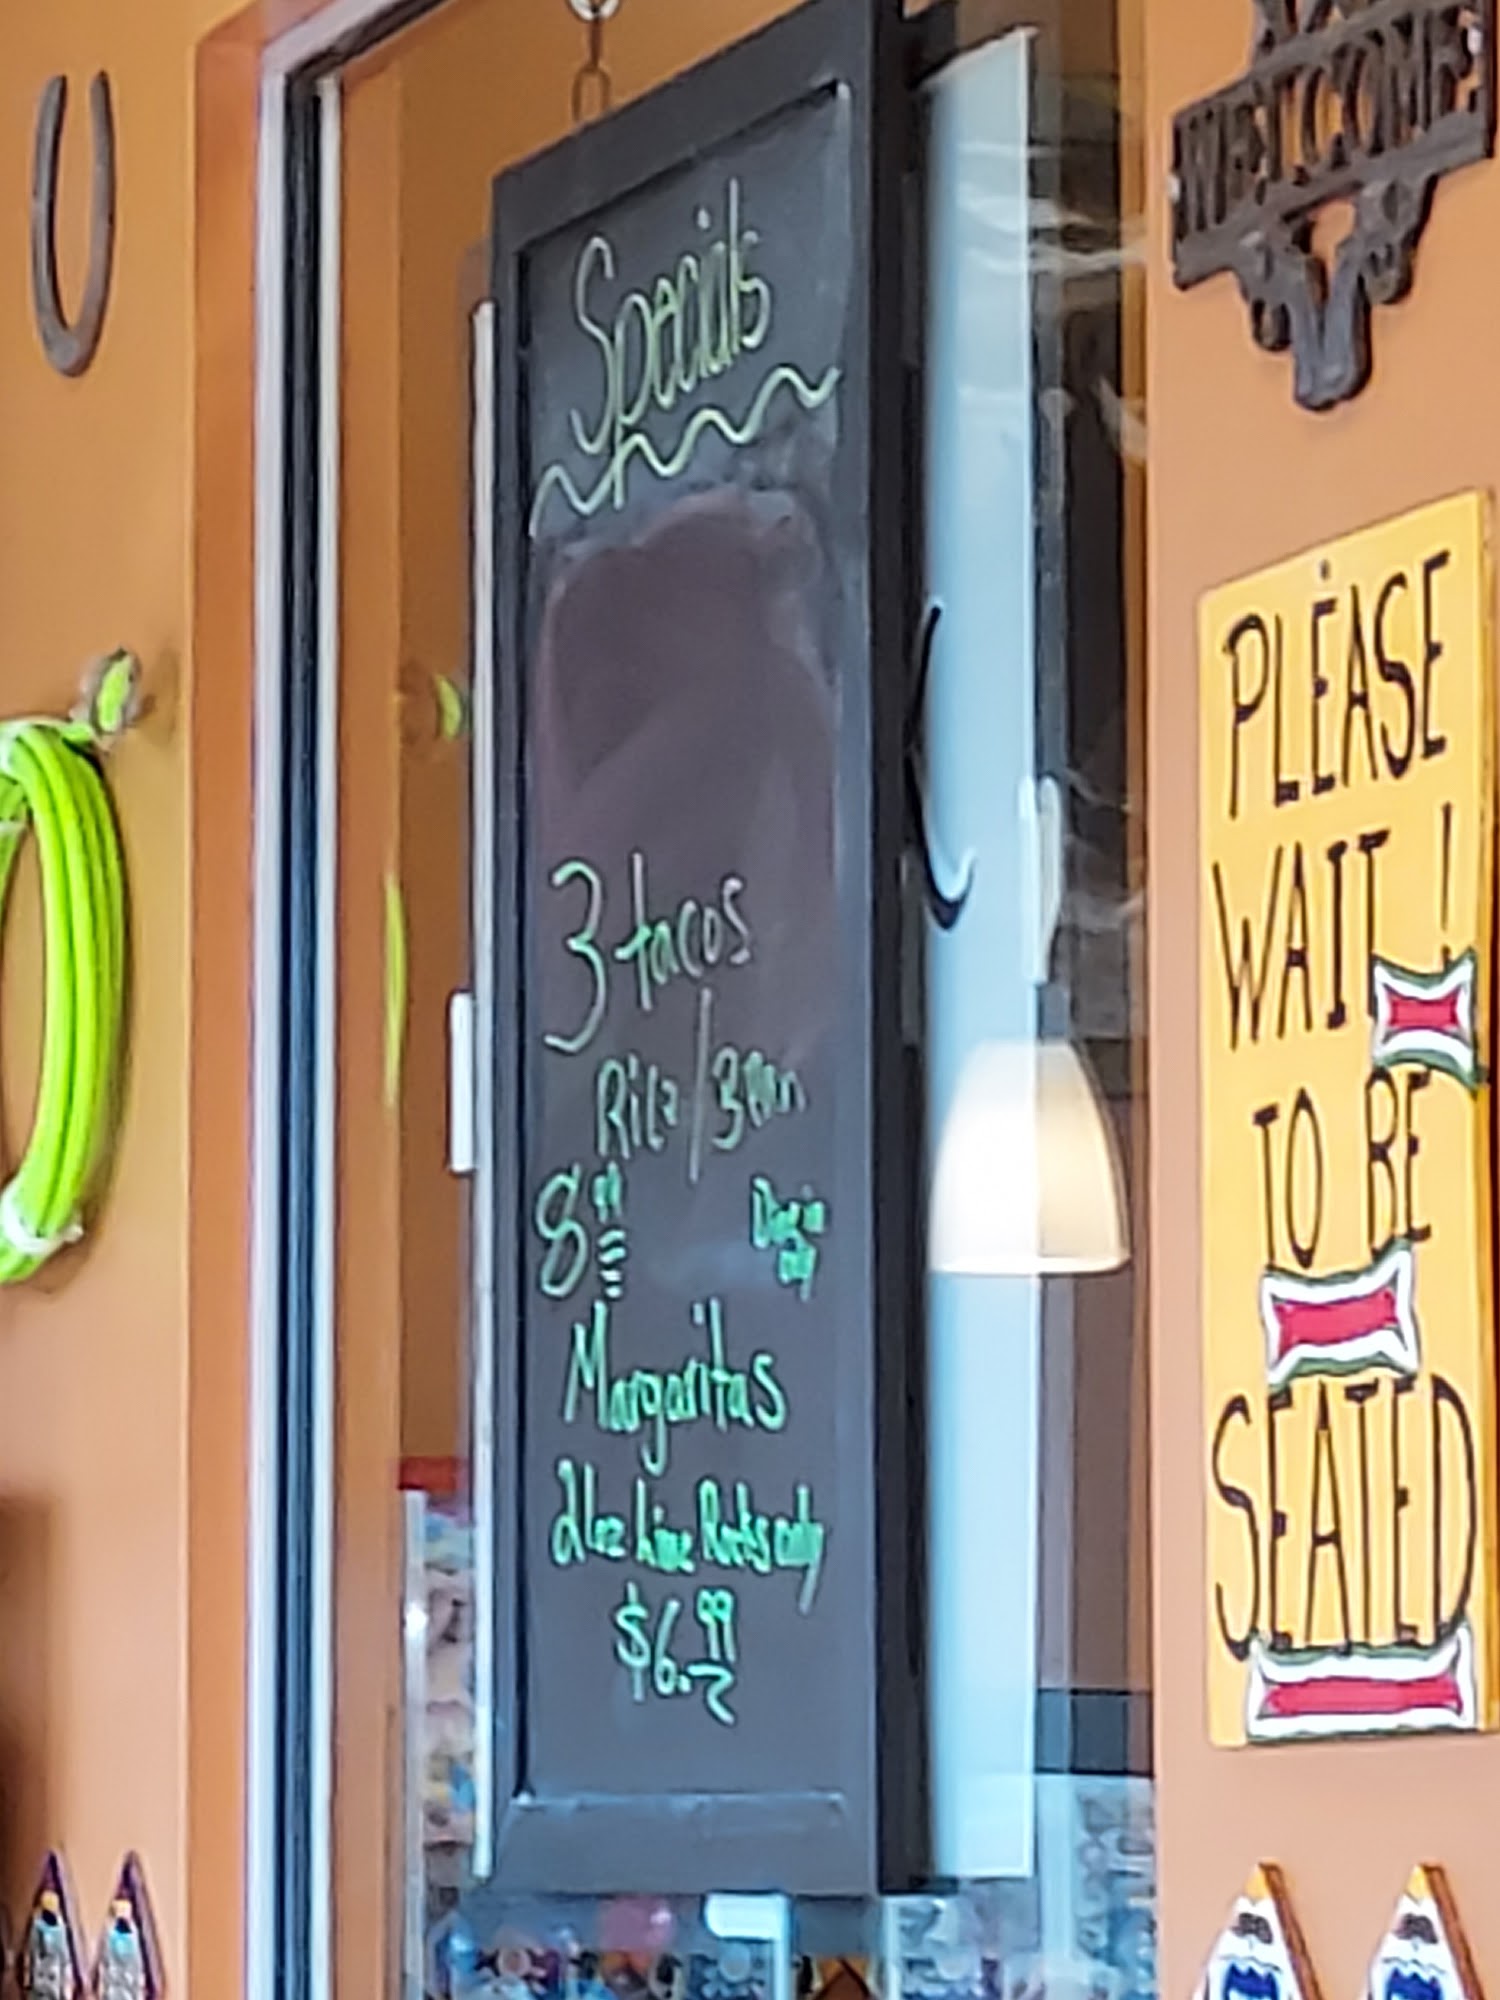 Specials
3 tacos
Rice/Bean
8.99
Dine in
only
Margaritas
21oz Lime Rocks only
$6.99
WELCOME
PLEASE
WAIT!
TO BE
SEATED